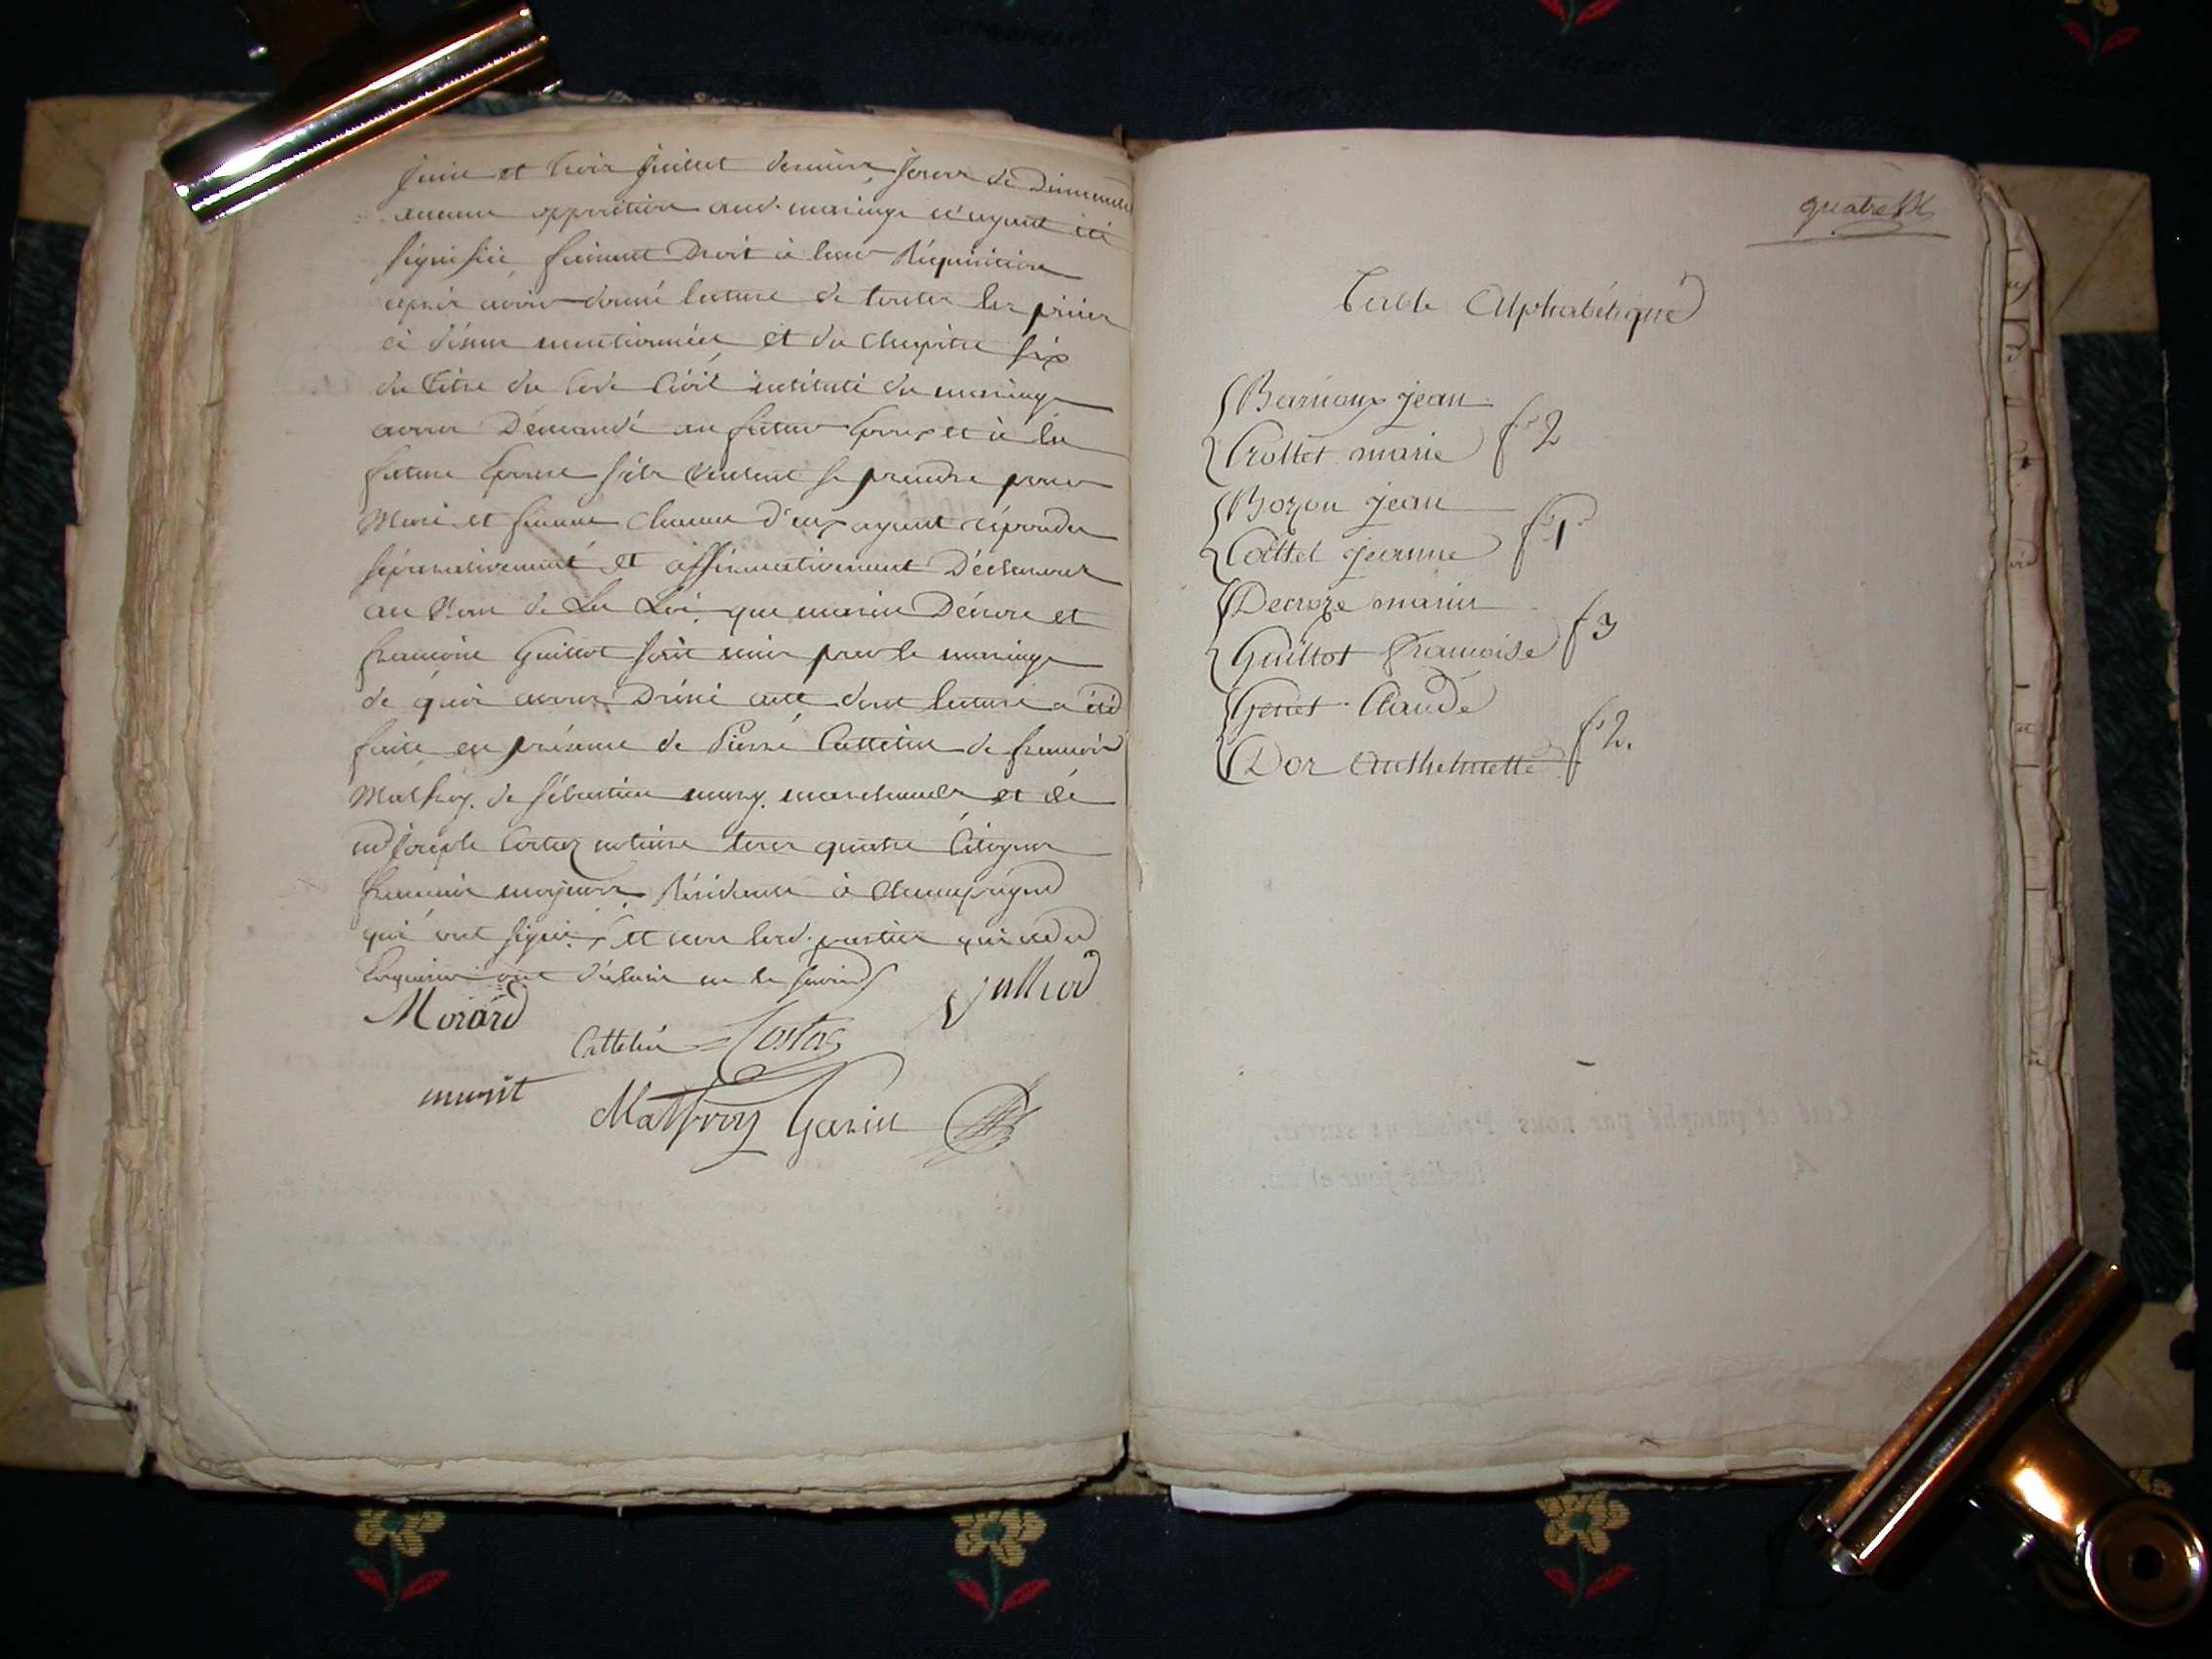 juin et trois juillet dernier jours de Dimanche
aucune opposition aud. mariage n'ayant été
signifiée, faisant Droit à leur Réquisition
après avoir donné lecture de toutes les pièces
ci désus mentionnées et du chapitre six
du titre du Code Civil intitulé du mariage
avons Démandé au futur Epoux et à la
future Epouse s'ils veulent se prendre pour
Mari et femme chacun d'eux ayant répondu
séparativement et affirmativement Déclarons
au Nom de La Loi, que marin Décroze et
francoise Guillot sont unis par le mariage
de quoi avons Dréssé acte dont lecture a été
faite en présence de Pierre Cattelin de francois
Malfroy. de sébastien marchands et de
notaire tous quatre Citoyens
francais majeurs Résidants à champagne
qui ont signé, et non les d. parties qui de ce
Enquises ont déclaré ne le savoir
Morard
Cattelin
Malfroy Garin
quatre
Table Alphabétique
Barnoux jean
Crottet marie f° 2
Bozon jean
Cattel jeanne f° 1
Decroze marin
Guillot francoise f 3
Genet Claude
Dor Anthelmette f° 2.
Coté et paraphé par nous Président
lesdits jour et an.